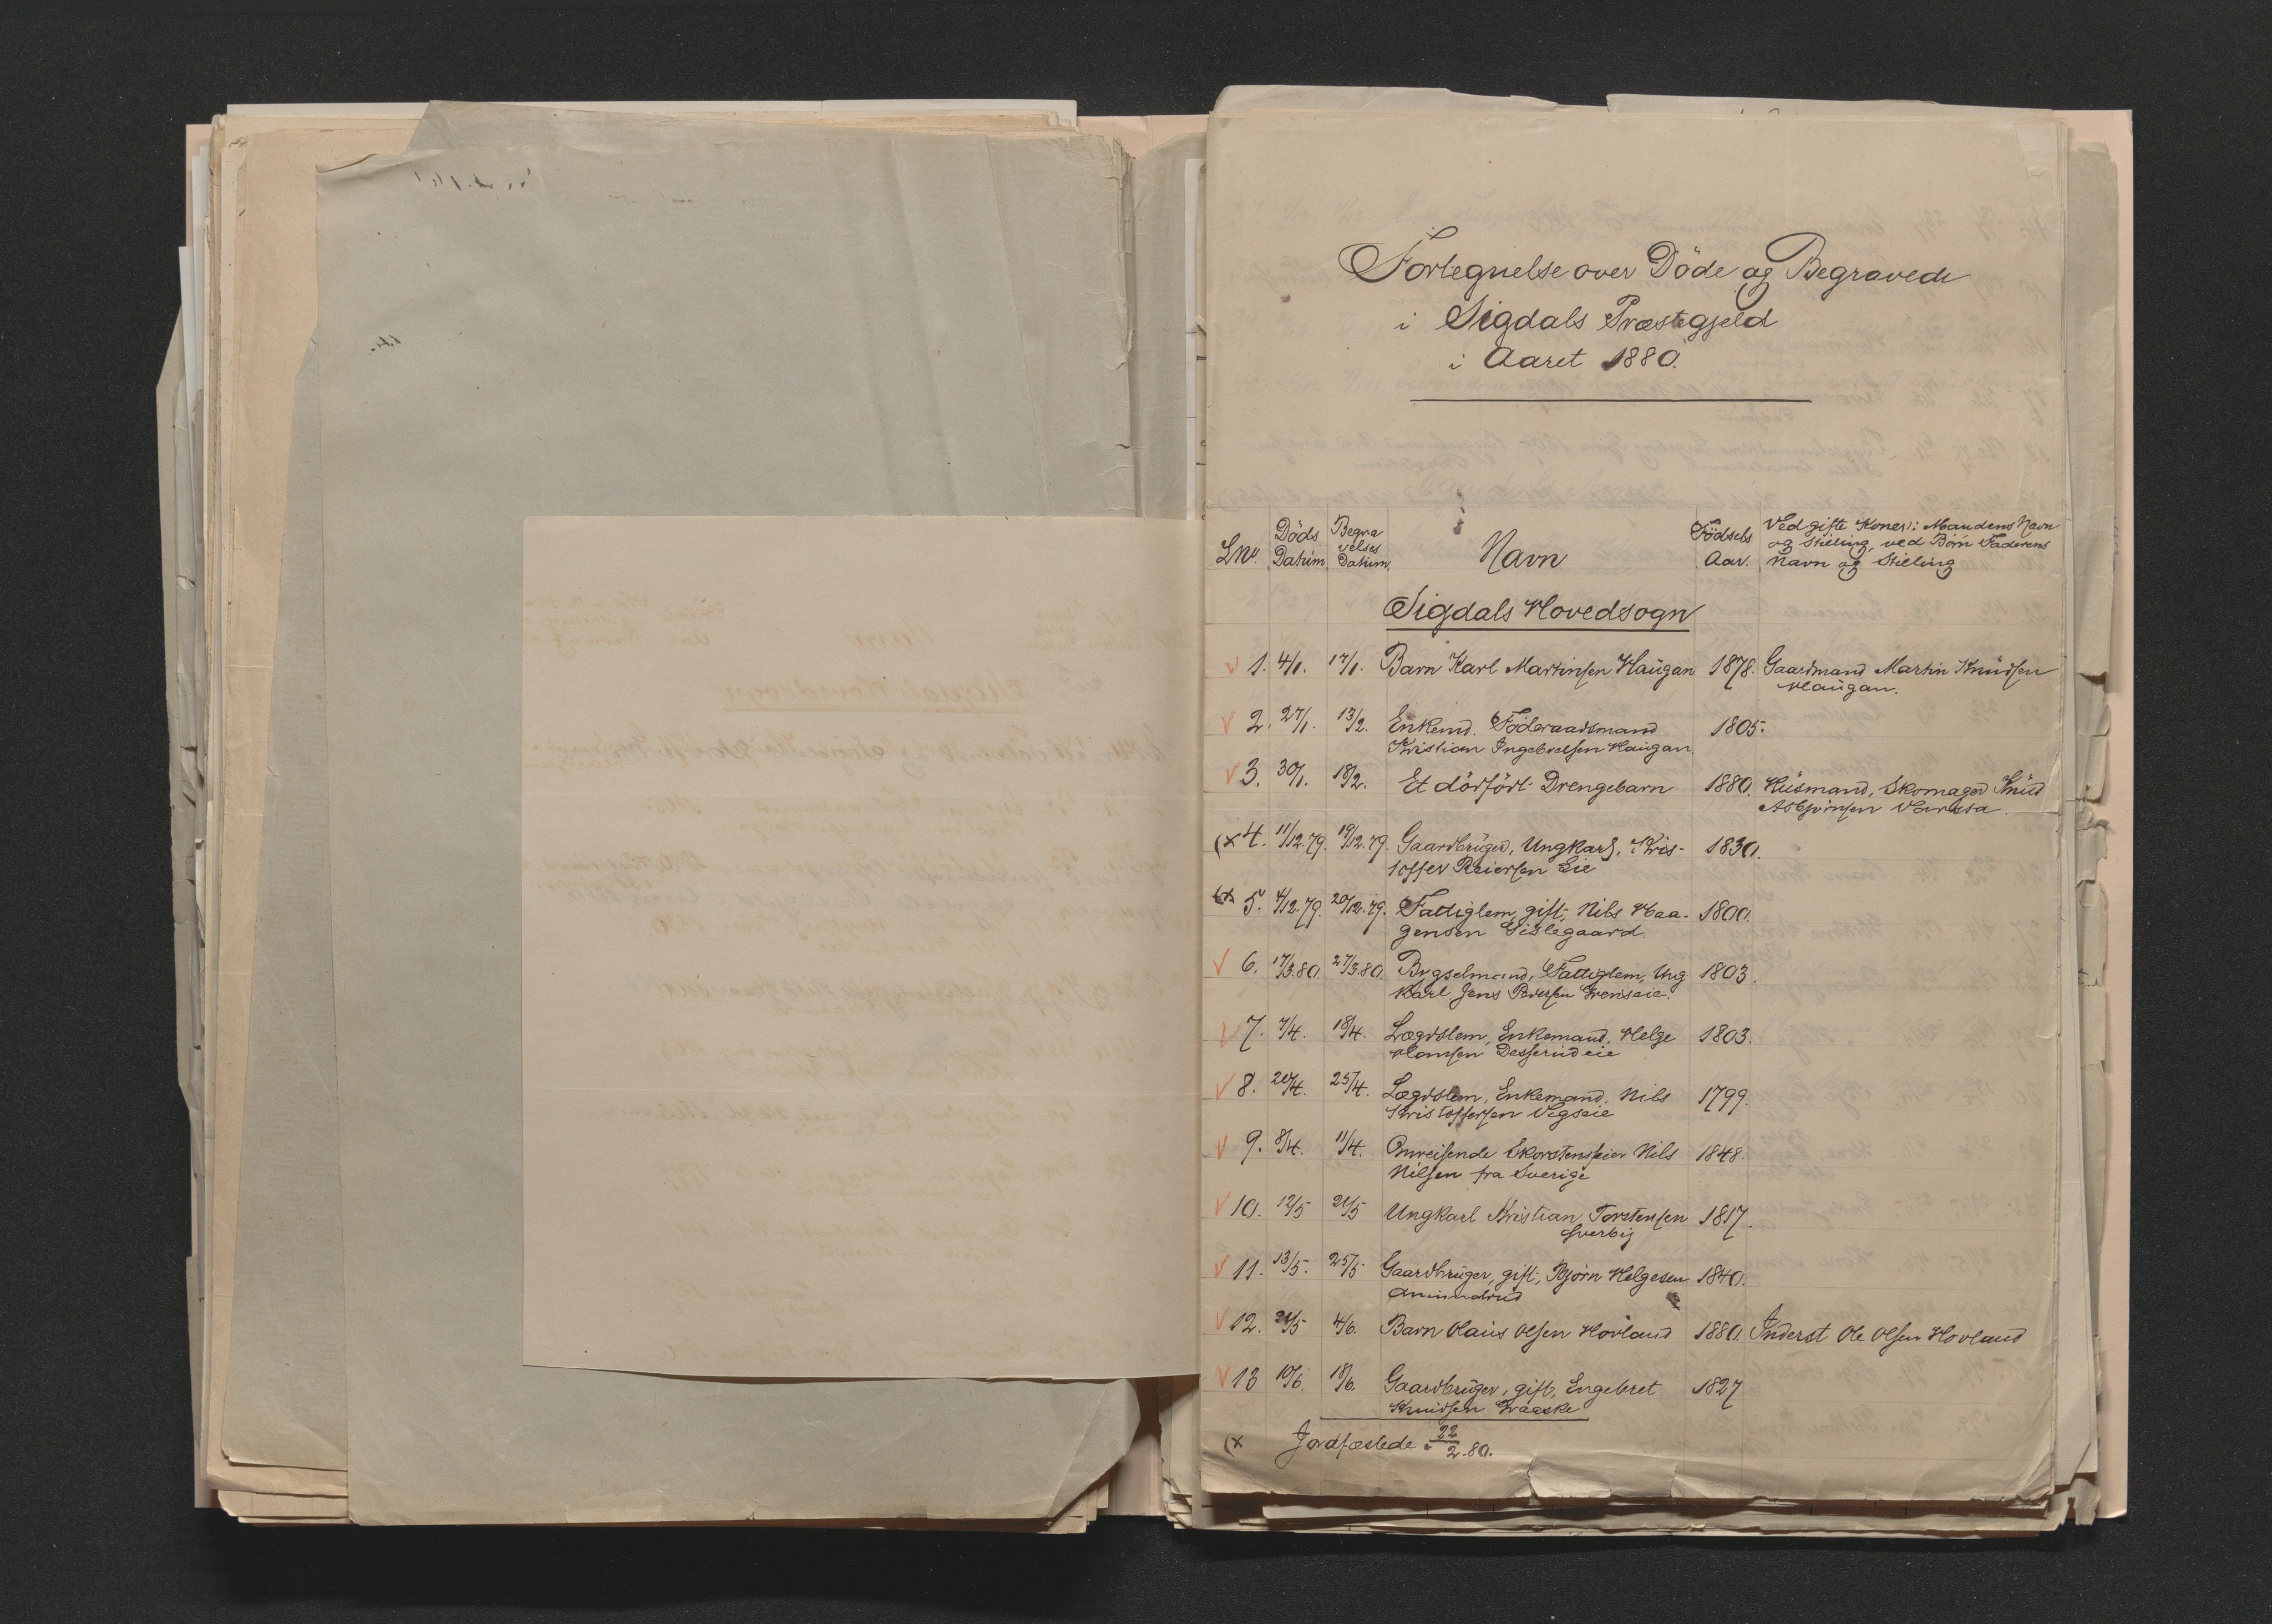 Fortegnelse over Döde og Begravede
i Sigdals Præstegjeld
i Aaret 1880.
LNo. Döds Datum Begravelses Datum. Navn Födsels Aar. Ved gifte Koner: Mandens Navn
og Stilling, ved Börn Faderens
Navn og Stilling
Sigdals Hovedsogn
1. 4/1. 17/1. Barn Karl Martinsen Haugan 1878. Gaardmand Martin Knudsen
Haugan.
2. 27/1. 13/2. Enkemd. Föderaadsmand 1805.
Kristian Ingebretsen Haugan
3. 30/1. 18/2. Et dödfödt Drengebarn 1880. Husmand, Skomager Knud
Asbjörnsen
(x 4. 11/12.79. 19/12.79. Gaardbruger, Ungkarl, Kris- 1830.
toffer Reiersen Lie
(x 5. 4/12.79. 20/12.79. Fattiglem, gift, Nils Haa- 1800.
gensen Gislegaard.
6. 17/3.80. 27/3.80. Bygselmand, Fattiglem, Ung 1803.
karl Jens Pedersen Grenseie.
7. 7/4. 18/4. Lægdslem, Enkemand, Helge 1803.
Hansen
8. 20/4. 25/4. Lægdslem, Enkemand. Nils 1799.
Kristoffersen Vegseie
9. 8/4. 11/4. Omreisende Skorstensfeier Nils 1848.
Nilsen fra Sverige
10. 12/5 21/5 Ungkarl Kristian Torstensen 1817.
11. 13/5. 25/5 Gaardbruger, gift, Björn Helgesen 1840.
Amundrud
12. 21/5 4/6. Barn Olaus Olsen Hovland 1880. Inderst Ole Olsen Hovland
13 10/6. 18/6. Gaardbruger, gift, Engebret 1827
Knudsen Graaske
(x Jordfæstede 22/2.80.